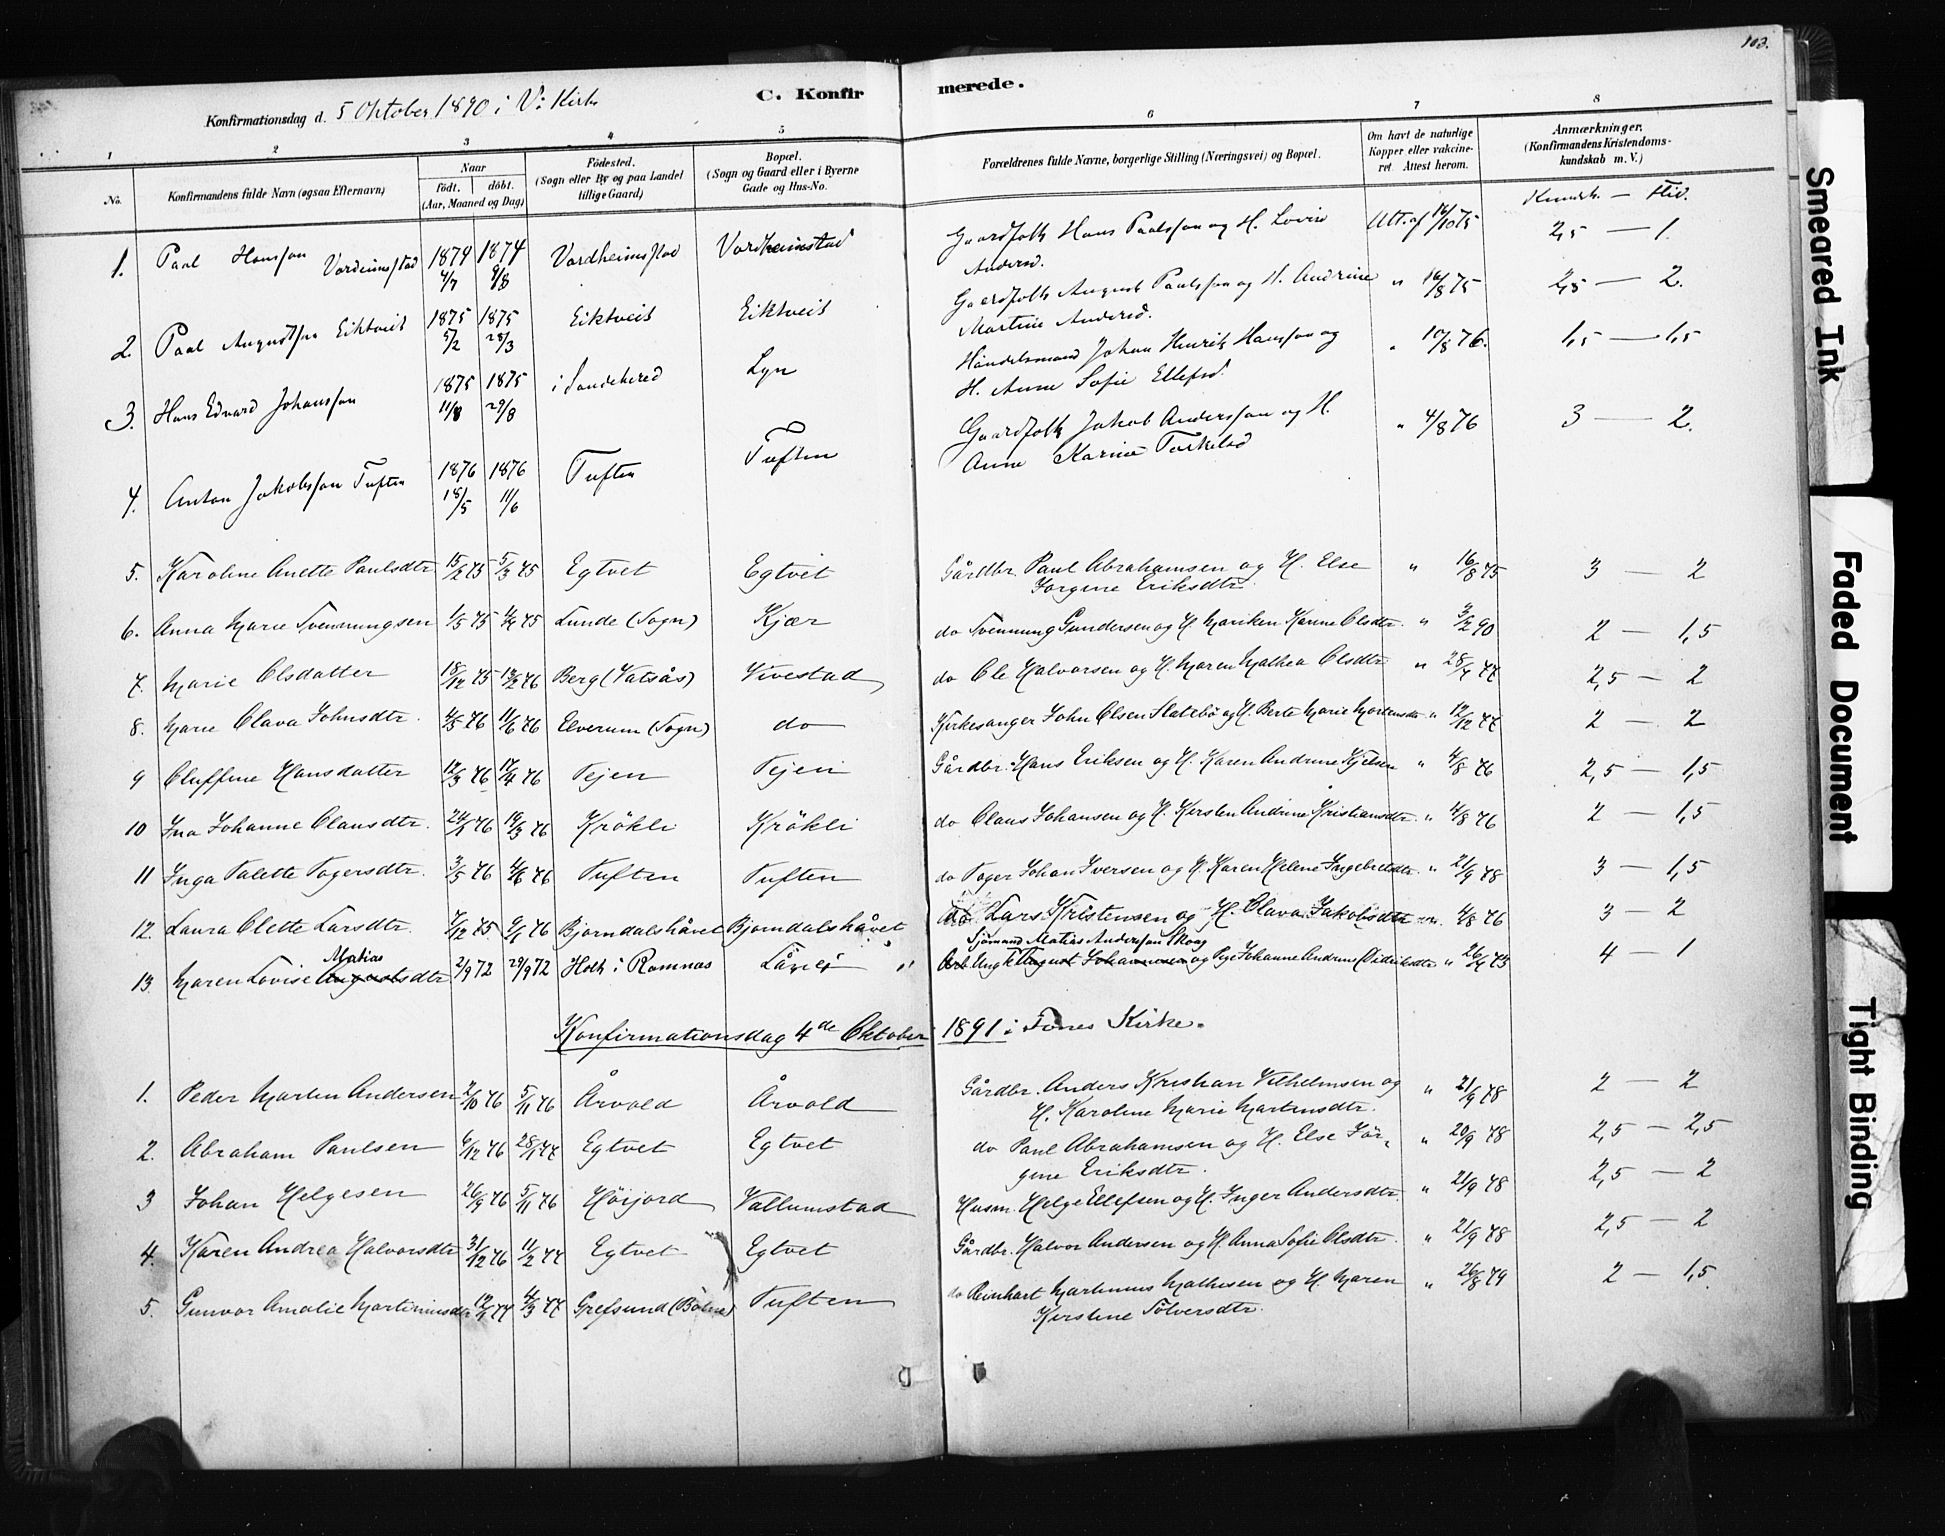 103.
C. Konfirmerede.
Konfirmationsdag d. 5 Oktober 1890 i V: Kirke
1 2 3 4 5 6 7 8
No. Konfirmandens fulde Navn (ogsaa Efternavn) Naar født. døbt. (Aar, Maaned og Dag) Fødested. (Sogn eller By og paa Landet tillige Gaard) Bopæl. (Sogn og Gaard eller i Byerne Gade og Hus-No. Forældrenes fulde Navne, borgerlige Stilling (Næringsvei) og Bopæl. Om havt de naturlige Kopper eller vakcineret. Attest herom. Anmærkninger. (Konfirmandens Kristendomskundskab m. V.)
Kundsk. — Flid.
1. Paal Hansson Vordeimstad 1874 4/7 1874 9/8 Vordheimstad Vordheimstad Gaardfolk Hans Paalsson og H. Lovise Andersd. Att. af 16/10 75 2,5 — 1.
2. Paal Augustsson Eiktveit 1875 5/2 1875 28/3 Eiktveit Eiktveit Gaardfolk August Paalsson og H. Andrine Martine Andersd. " 16/8 75 2,5 — 2.
3. Hans Edvard Johansson 1875 11/8 1875 29/8 i Sandehered Lyn Handelsmand Johan Henrik Hansson og H. Anne Sofie Ellefsd. " 17/8 76. 1,5 — 1,5
4. Anton Jakobsson Tuften 1876 18/5 1876 11/6 Tuften Tuften Gaardfolk Jakob Andersson og H. Anne Karine Torkilsd " 4/8 76 3 — 2.
5. Karoline Anette Paulsdtr 15/2 75 5/3 75 Egtvet Egtvet Gårdbr. Paul Abrahamsen og H. Else Jorgine Eriksdtr. " 16/8 75 3 — 2
6. Anna Marie Svenningsen 1/5 75 4/7 75 Lunde (Sogn) Kjær do Svenning Gundersen og H. Mariken Karine Olsdtr. " 3/2 90 2 — 1,5
7. Marie Olsdatter 18/12 75 13/2 76 Berg (Vatsås) Vivestad do Ole Halvorsen og H. Maren Mathea Olsdtr " 28/4 77 2,5 — 2
8. Marie Olava Johnsdtr. 4/5 76 11/6 76 Elverum (Sogn) do Kirkesanger John Olsen Slatebø og H. Berte Marie Mortensdtr " 12/12 77 2 — 2
9 Oluffine Hansdatter 12/3 76 17/4 76 Tejen Tejen Gårdbr. Hans Eriksen og H. Karen Andrine Kjelsen " 4/8 76 2,5 — 1,5
10 Ina Johanne Clausdtr. 24/1 76 19/3 76 Krökli Krökli do Claus Johansen og H. Kersten Andrine Kristiansdtr. " 4/8 76 2 — 1,5
11 Inga Talette Tagersdtr. 3/5 76 4/6 76 Tuften Tuften do Tager Johan Iversen og H. Karen Helene Ingebretsdtr. " 21/9 78 3 — 1,5
12. Laura Olette Larsdtr. 7/12 75 9/1 76 Bjorndalshåvet Bjorndalshåvet do Lars Kristensen og H. Olava Jakobsdtr " 4/8 76 3 — 2
Matias Sjømand Matias Anderssen Skaug
13. Maren Lovise Augustsdtr 2/9 72 29/9 72 Holt i Ramnas Låne Arb. Ungk August Johannesen og Pige Johanne Andrine Didriksdtr " 26/4 73 4 — 1
Konfirmationsdag 4de Oktober 1891 i Fones Kirke.
1. Peder Martin Andersen 2/10 76 5/11 76 Årvold Årvold Gårdbr. Anders Kristian Vilhelmsen og H. Karoline Marie Martinsdtr. " 21/9 78 2 — 2
2. Abraham Paulsen 6/12 76 28/1 77 Egtvet Egtvet do Paul Abrahamsen og H. Else Jörgine Eriksdtr. " 20/9 78 2,5 — 2,5
3 Johan Helgesen 26/9 76 5/11 76 Höijord Vallumstad Husm. Helge Ellefsen og H. Inger Andersdtr. " 21/9 78 2,5 — 2
4. Karen Andrea Halvorsdtr 31/12 76 11/2 77 Egtvet Egtvet Gårdbr. Halvor Andersen og H. Anna Sofie Olsdtr. " 21/9 78 2,5 — 2
5. Gunvor Amalie Martiniusdtr 12/1 77 4/3 77 Grefsund (Botne) Tuften do Reinhart Martinius Mathisen og H. Maren Kirstine Sölversdtr. " 26/8 79 2 — 1,5
Smeared Ink
Faded Document
Tight Binding